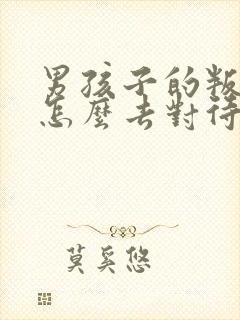 男孩子的叛
怎麼去對待
莫奚悠